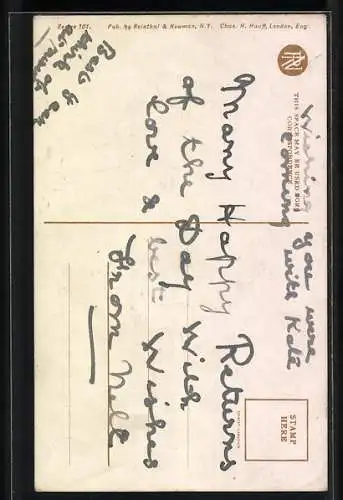 Series 101.
Pub. by Reinthal & Newman, N.Y.
Chas. H. Hauff, London, Eng.
RN
THIS SPACE MAY BE USED FOR
CORRESPONDENCE
STAMP
HERE
Wishing you were
coming with Kate
Many Happy Returns
of the Day with
love & best Wishes
From Nell
Best I can
think of
at minute